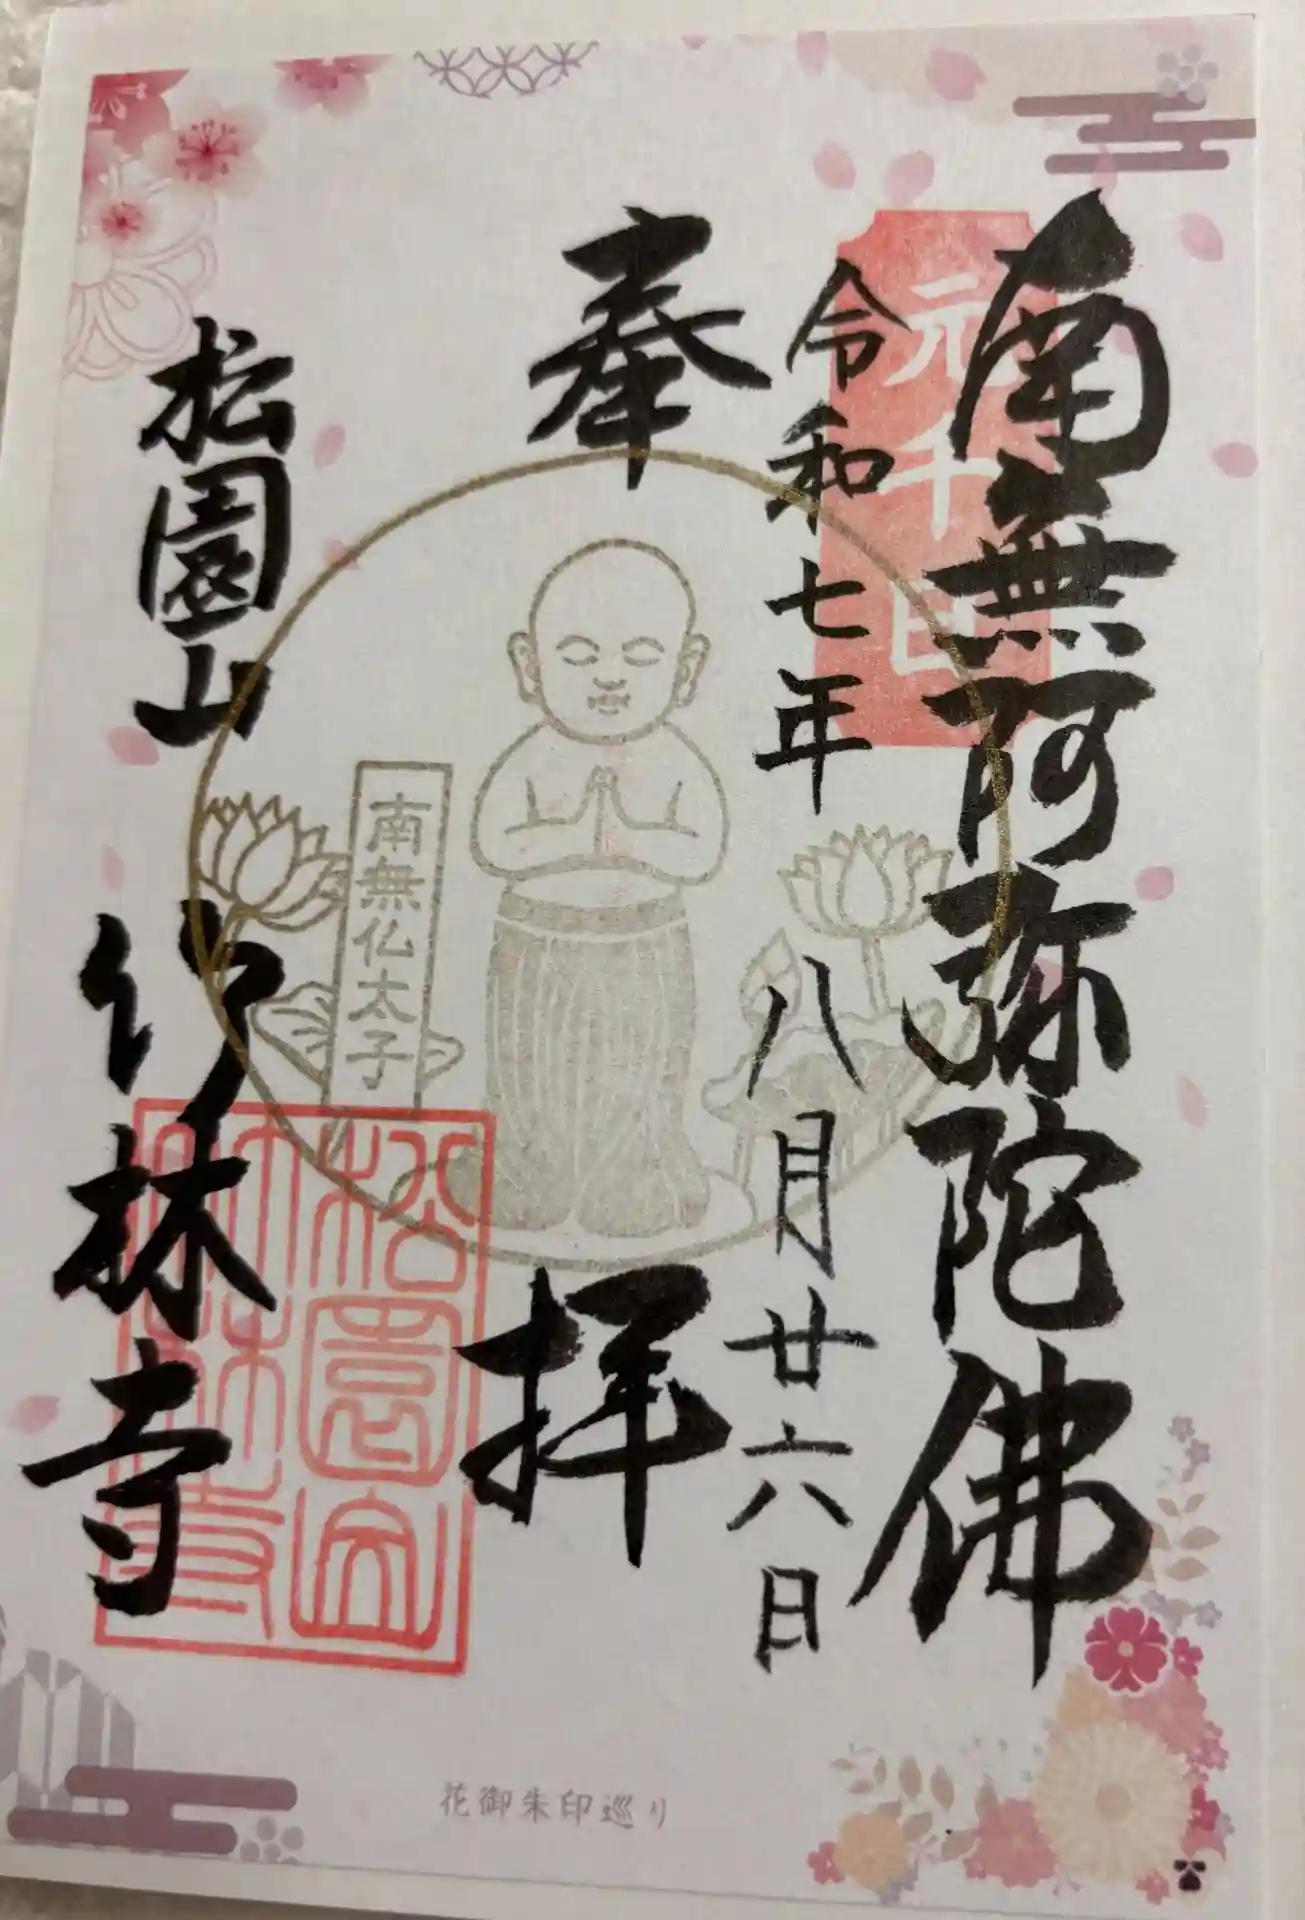 南無阿弥陀佛
令和七年
八月廿六日
奉
拝
南無仏太子
松園山
竹林寺
花御朱印巡り